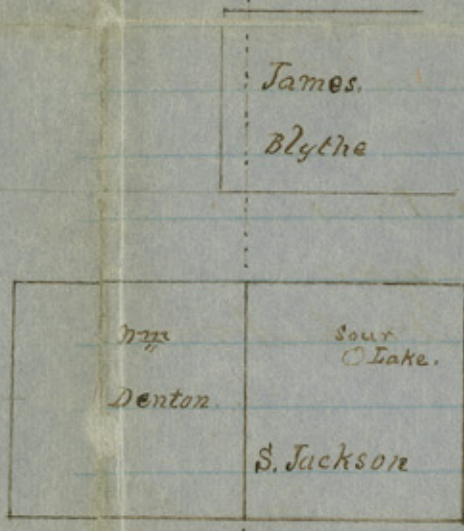 James.
Blythe
Wm
Denton.
Sour
Lake.
S. Jackson